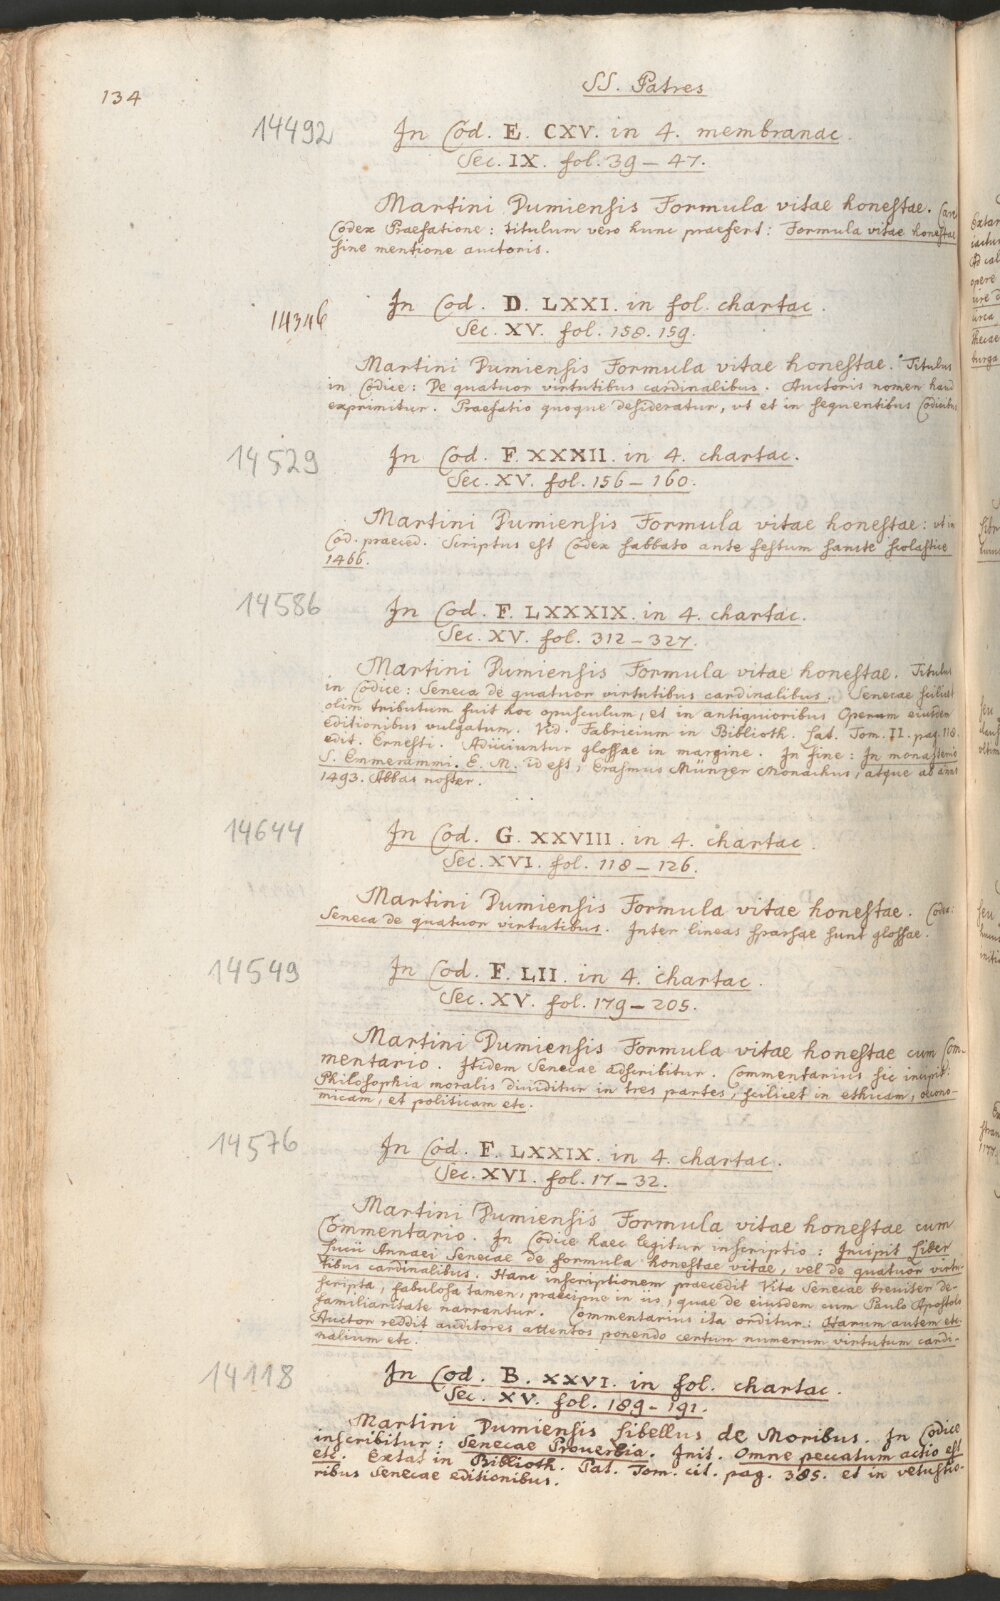 134
SS. Patres
14492
In Cod. E. CXV. in 4. membranac.
Sec. IX. fol. 39 – 47.
Martini Dumiensis Formula vitae honestae. Caret
Codex Praefatione: titulum vero hunc praefert: Formula vitae honestae
sine mentione auctoris.
14346
In Cod. D. LXXI. in fol. chartac.
Sec. XV. fol. 158. 159.
Martini Dumiensis Formula vitae honestae. Titulus
in Codice: De quatuor virtutibus cardinalibus. Auctoris nomen haud
exprimitur. Praefatio quoque desideratur, vt et in sequentibus Codicibus
14529
In Cod. F. XXXII. in 4. chartac.
Sec. XV. fol. 156 – 160.
Martini Dumiensis Formula vitae honestae: vt in
Cod. praeced. Scriptus est Codex sabbato ante festum sancte scolastice
1466.
14586
In Cod. F. LXXXIX. in 4. chartac.
Sec. XV. fol. 312 – 327.
Martini Dumiensis Formula vitae honestae. Titulus
in Codice: Seneca de quatuor virtutibus cardinalibus. Senecae scilicet
olim tributum fuit hoc opusculum, et in antiquioribus Operum eiusdem
editionibus vulgatum. Vid. Fabricium in Biblioth. Lat. Tom. II. pag. 118.
edit. Ernesti. Adiiciuntur glossae in margine. In fine: In monasterio
S. Emmerammi. E. M. id est, Erasmus Münzer Monachus, atque ab anno
1493. Abbas noster.
14644
In Cod. G. XXVIII. in 4. chartac.
Sec. XVI. fol. 118 – 126.
Martini Dumiensis Formula vitae honestae. Codex:
Seneca de quatuor virtutibus. Inter lineas sparsae sunt glossae.
14549
In Cod. F. LII. in 4. chartac.
Sec. XV. fol. 179 – 205.
Martini Dumiensis Formula vitae honestae cum Com-
mentario. Itidem Senecae adscribitur. Commentarius sic incipit:
Philosophia moralis diuiditur in tres partes, scilicet in ethicam, oecono-
micam, et politicam etc.
14576
In Cod. F. LXXIX. in 4. chartac.
Sec. XVI. fol. 17 – 32.
Martini Dumiensis Formula vitae honestae cum
Commentario. In Codice haec legitur inscriptio: Incipit Liber
Lucii Annaei Senecae de formula honestae vitae, vel de quatuor virtu-
tibus cardinalibus. Hanc inscriptionem praecedit Vita Senecae breuiter de-
scripta, fabulosa tamen, praecipue in iis, quae de eiusdem cum Paulo Apostolo
familiaritate narrantur. Commentarius ita orditur: Harum autem etc.
Auctor reddit auditores attentos ponendo certum numerum virtutum cardi-
nalium etc.
14118
In Cod. B. XXVI. in fol. chartac.
Sec. XV. fol. 189 – 191.
Martini Dumiensis Libellus de Moribus. In Codice
inscribitur: Senecae Prouerbia. Init. Omne peccatum actio est
etc. Extat in Biblioth. Pat. Tom. cit. pag. 385. et in vetustio-
ribus Senecae editionibus.